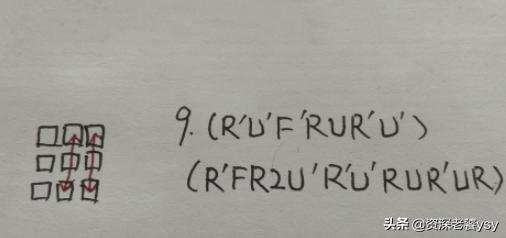 9. (R'U'F'RUR'U')
(R'FR2U'R'U'RUR'UR)
头条 @资深老饕ysy